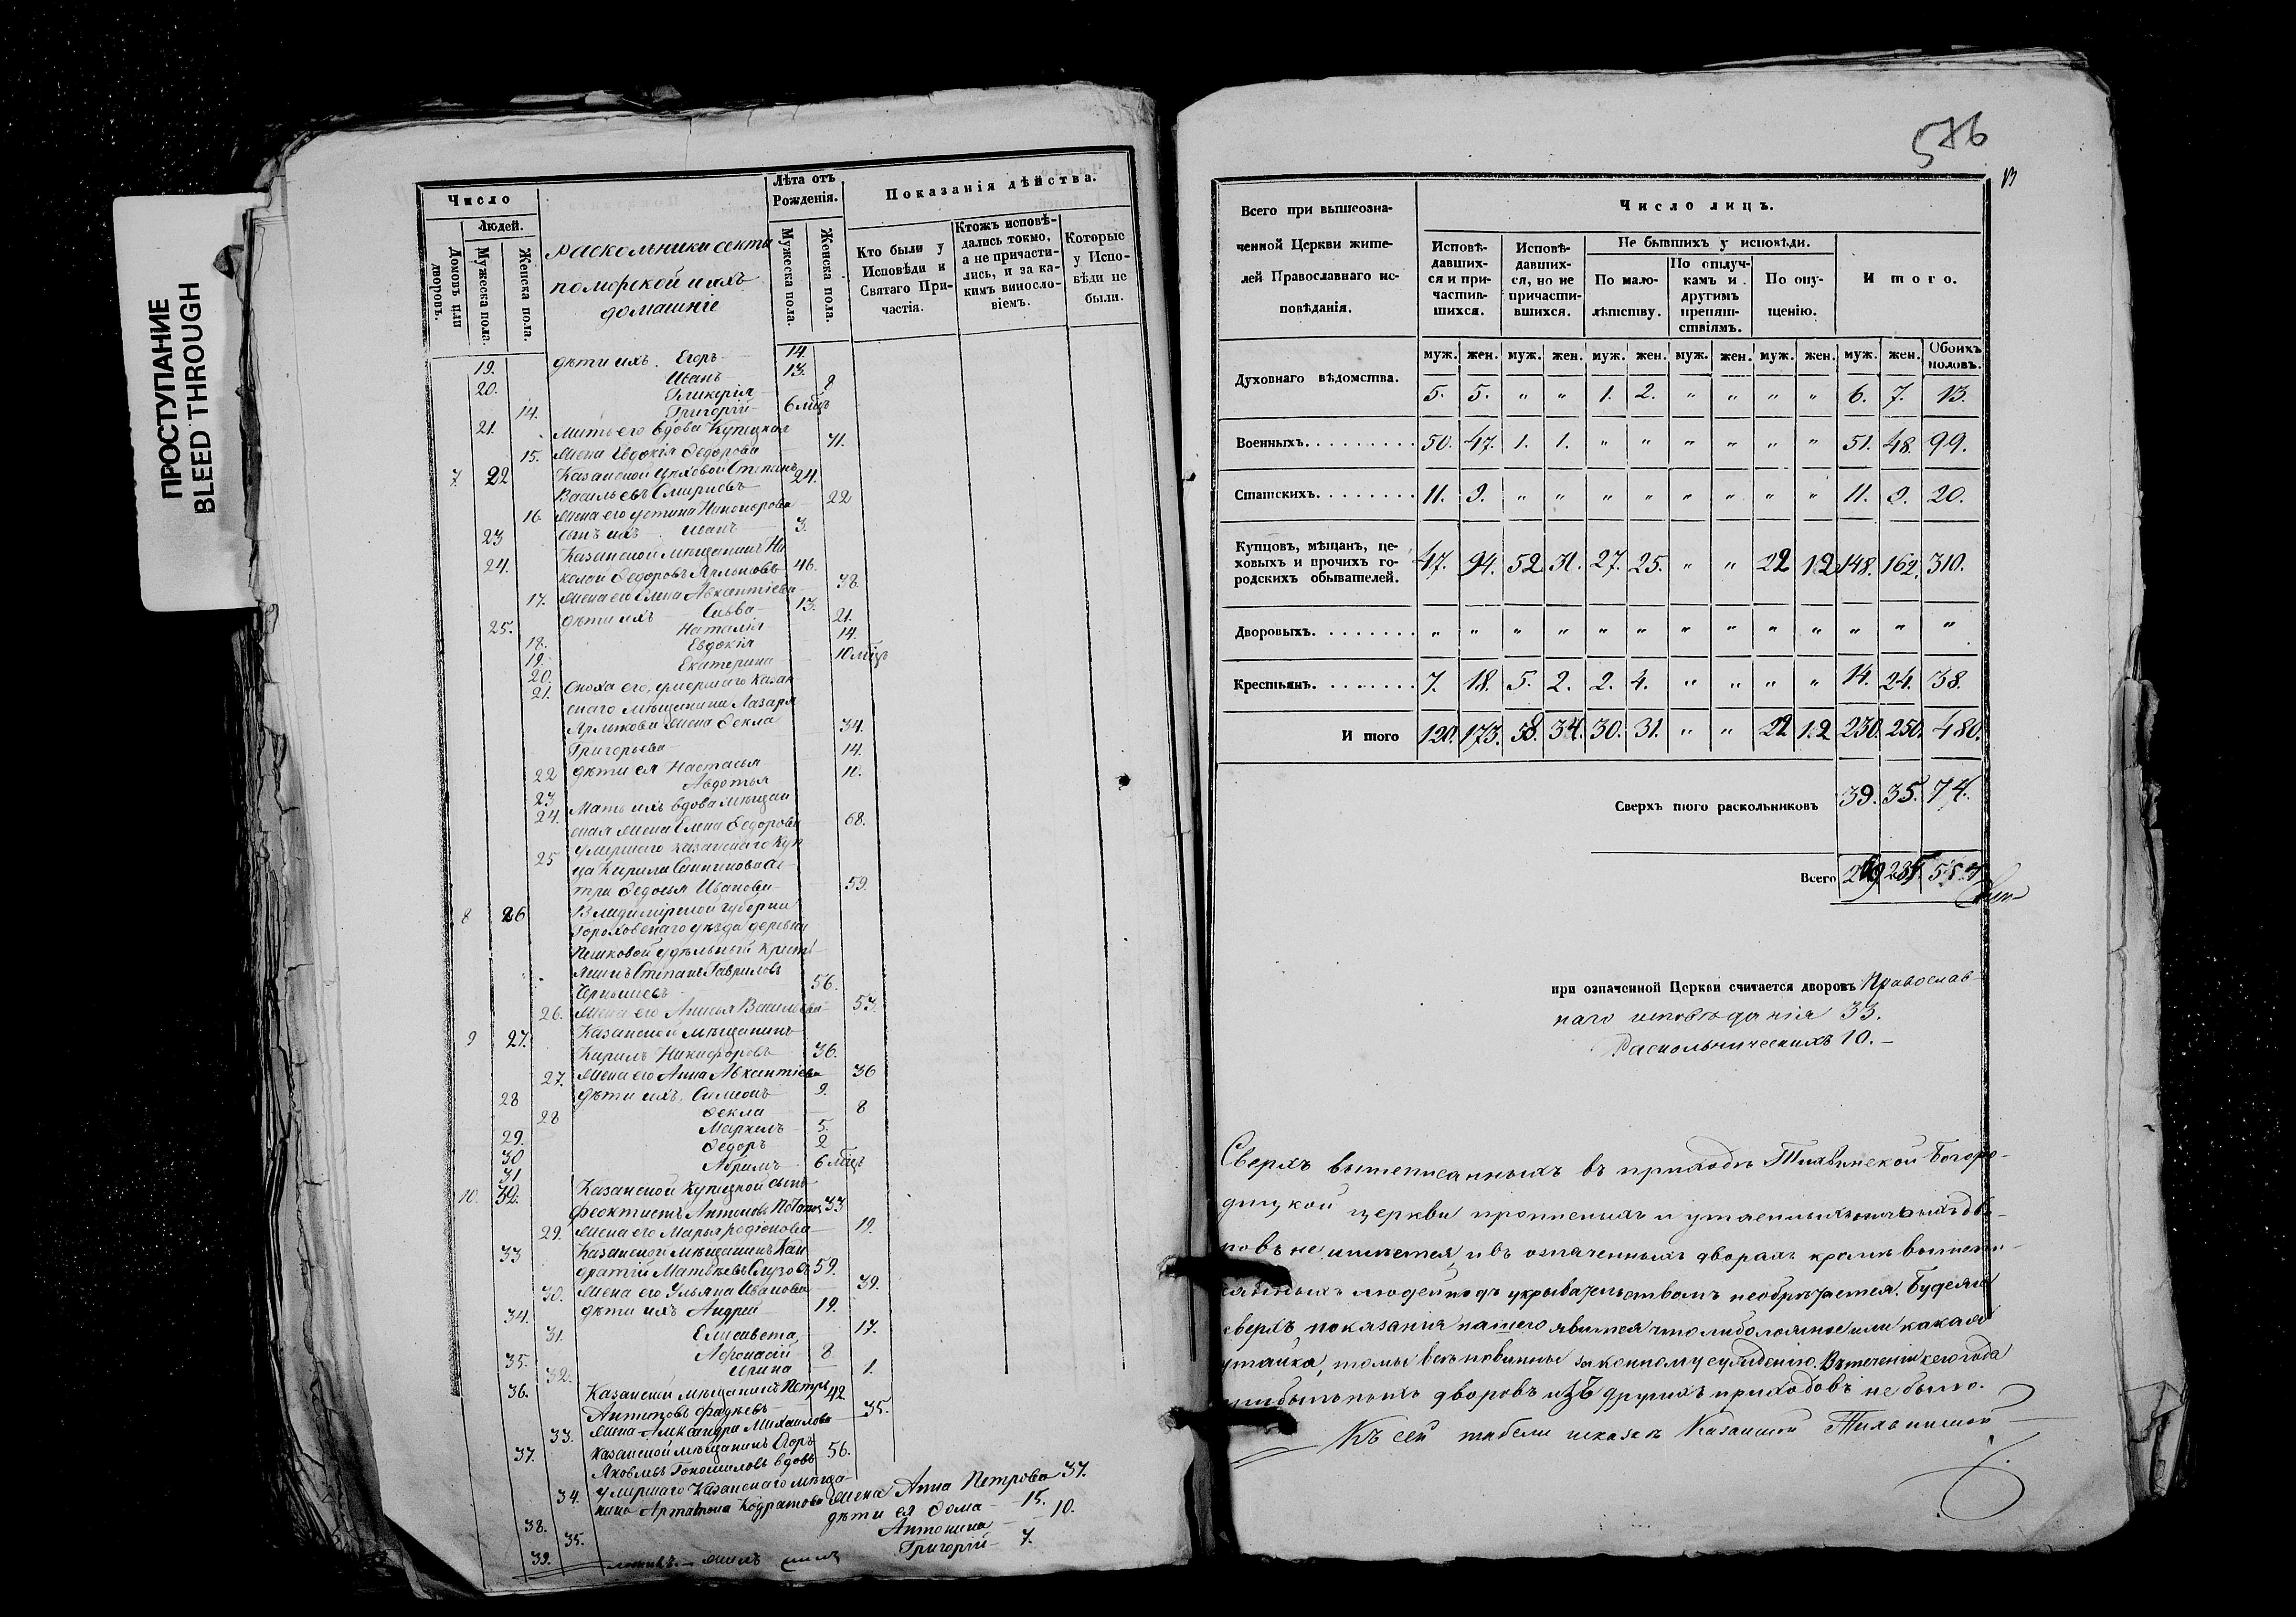 ПРОСТУПАНИЕ
BLEED THROUGH
Число
Людей.
Домовъ или дворовъ.
Мужеска пола.
Женска пола.
Раскольники секты
поморской и ихъ
домашніе
Лѣта отъ
Рожденія.
Мужеска пола.
Женска пола.
Показанія дѣйства.
Кто были у
Исповѣди и
Святаго При-
частія.
Ктожъ исповѣ-
дались токмо,
а не причасти-
лись, и за ка-
кимъ винosло-
віемъ.
Которые
у Испо-
вѣди не
были.
19. дѣти ихъ. Егоръ 14.
20. Иванъ 13.
14. Гликерія 8
21. Григорій 6 мѣц
Мать его вдова Купецкая
15. жена Евдокія Федорова 71.
7. 22 Казанской цеховой Степанъ
Васильевъ Смирновъ 24.
16. жена его Устина Никонорова 22
23 сынъ ихъ Иванъ 3.
24. Казанской мѣщанинъ Ни
колай Федоровъ 46.
17. жена его Елена Авксентіева 38.
25. дѣти ихъ Савва 13.
18. Наталія 21.
19. Евдокія 14.
20. Екатерина 10 мѣц
21. Сноха его, умершаго Казан
скаго мѣщанина Лазаря
жена Фекла
Григорьева 34.
22 дѣти ея Настасья 14.
23 Авдотья 10.
24. Мать ихъ вдова мѣщан
ская жена Елена Федорова 68.
25 Умершаго казанскаго куп
ца Кирила
Федосья Иванова 59.
8 26 Владимірской губерніи
Гороховскаго уѣзда деревни
удѣльный крестъ
янинъ Степанъ Гавриловъ
Чернышевъ 56.
26. жена его Анисья Васильева 53.
9 27. Казанской мѣщанинъ
Кирилъ Никифоровъ 36.
27. жена его Анна Авксентіева 36
28 дѣти ихъ. Симеонъ 9.
28 Фекла 8
29. Маркелъ 5.
30 Федоръ 2
31 Абрамъ 6 мѣц
10. 32. Казанской Купецкой сынъ
Феоктистъ Антоновъ 33
29. жена его Марья Родіонова 19.
33 Казанской мѣщанинъ Кон
дратій Матвѣевъ 59.
30. жена его Ульяна Иванова 39.
34. дѣти ихъ Андрей 19.
31. Елисавета, 17.
35. Афонасій 8
32. Ирина 1.
36. Казанской мѣщанинъ Петръ
Антиповъ Фадѣевъ 42
33. жена Александра Михайлова 35.
37. Казанской мѣщанинъ Егоръ
Яковлевъ вдовъ 56.
34. умершаго Казанскаго мѣща
нина Артамона Кодратова жена Анна Петрова 37.
38. дѣти ея Фома 15.
35. Антонина 10.
39. Григорій 7.
576
13
Всего при вышеозна-
ченной Церкви жите-
лей Православнаго ис-
повѣданія.
Число лицъ.
Исповѣ-
давших-
ся и при-
частив-
шихся.
Исповѣ-
давших-
ся, но не
причасти-
вшихся.
Не бывшихъ у исповѣди.
По мало-
лѣтству.
По отлуч-
камъ и
другимъ
препят-
ствіямъ.
По опу-
щенію.
Итого.
муж. жен. муж. жен. муж. жен. муж. жен. муж. жен. муж. жен. Обоихъ половъ.
Духовнаго вѣдомства. 5. 5. " " 1. 2. " " " " 6. 7. 13.
Военныхъ. 50. 47. 1. 1. " " " " " " 51. 48. 99.
Статскихъ. 11. 9. " " " " " " " " 11. 9. 20.
Купцовъ, мѣщанъ, це-
ховыхъ и прочихъ го-
родскихъ обывателей. 47. 94. 52. 31. 27. 25. " " 22 12 148. 162. 310.
Дворовыхъ. " " " " " " " " " " " " "
Крестьянъ. 7. 18. 5. 2. 2. 4. " " " " 14. 24. 38.
Итого 120. 173. 58. 34. 30. 31. " " 22 12 230. 250. 480.
Сверхъ того раскольниковъ 39. 35. 74.
Всего
при означенной Церкви считается дворовъ Православ-
наго исповѣданія 33.
Раскольническихъ 10.
Сверхъ вышеписанныхъ въ приходѣ Тихвинской Богоро-
дицкой церкви прописныхъ и утаенныхъ дво-
ровъ не имѣется, и въ означенныхъ дворахъ кромѣ вышепи-
людей подъ укрывательствомъ необрѣтается. Буде же
сверхъ показанія нашего явится что либо ложное или какая
утайка, повинны законному сужденію. Въ теченіи сего года
прибылыхъ дворовъ изъ другихъ приходовъ не было.
Къ сей табели Казанской Тихвинской